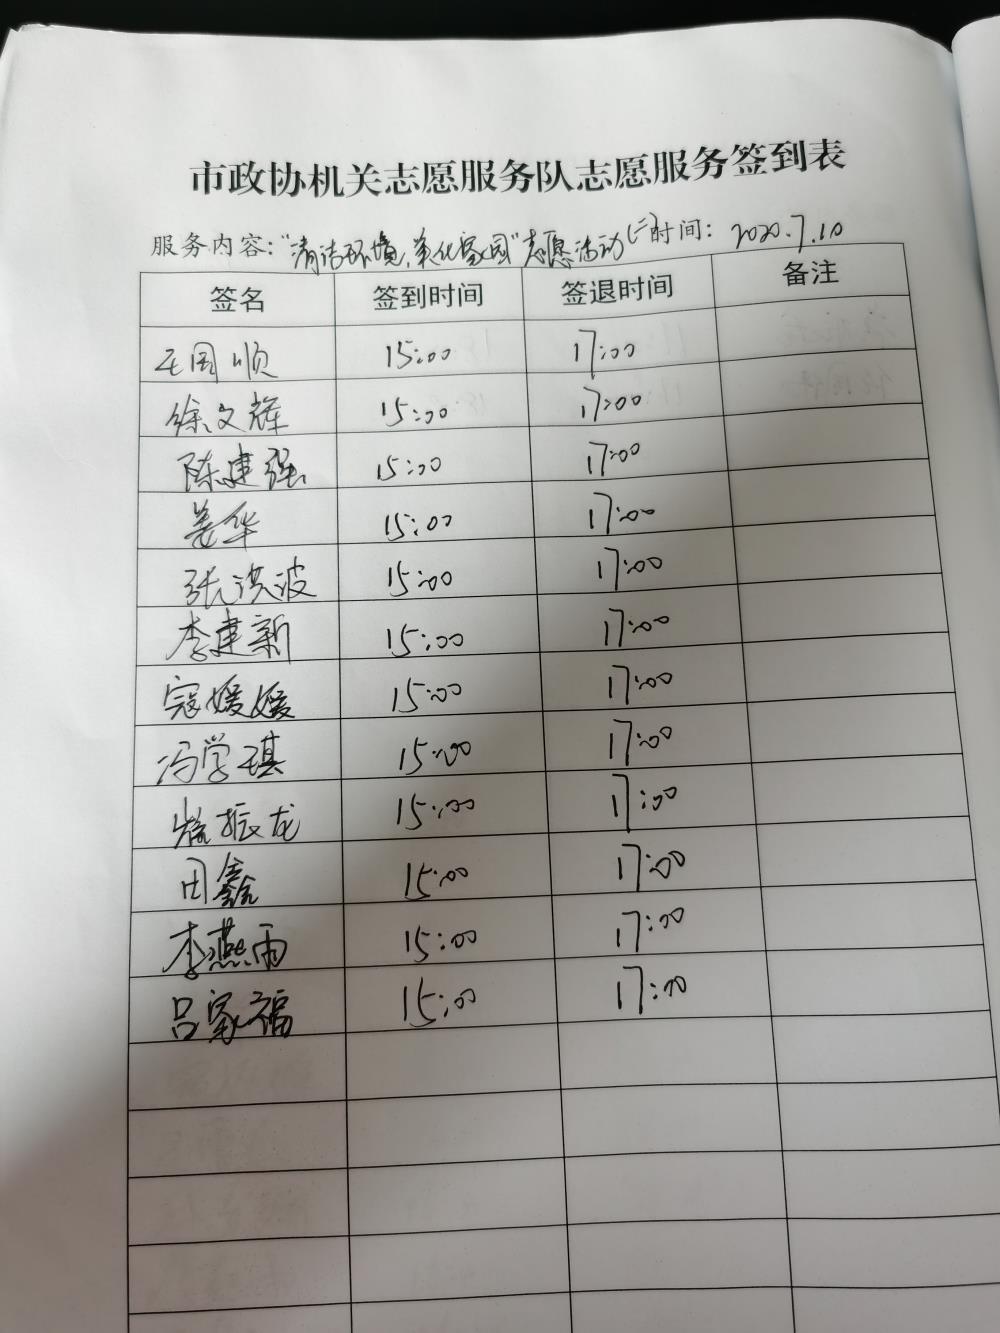 市政协机关志愿服务队志愿服务签到表
服务内容："清洁环境,美化家园"志愿活动(二)时间：2020.7.10
签名 签到时间 签退时间 备注
王国顺 15:00 17:00
徐文辉 15:00 17:00
陈建强 15:00 17:00
姜华 15:00 17:00
张洪波 15:00 17:00
李建新 15:00 17:00
寇媛媛 15:00 17:00
冯学琪 15:00 17:00
振龙 15:00 17:00
田鑫 15:00 17:00
李燕雨 15:00 17:00
吕家福 15:00 17:00